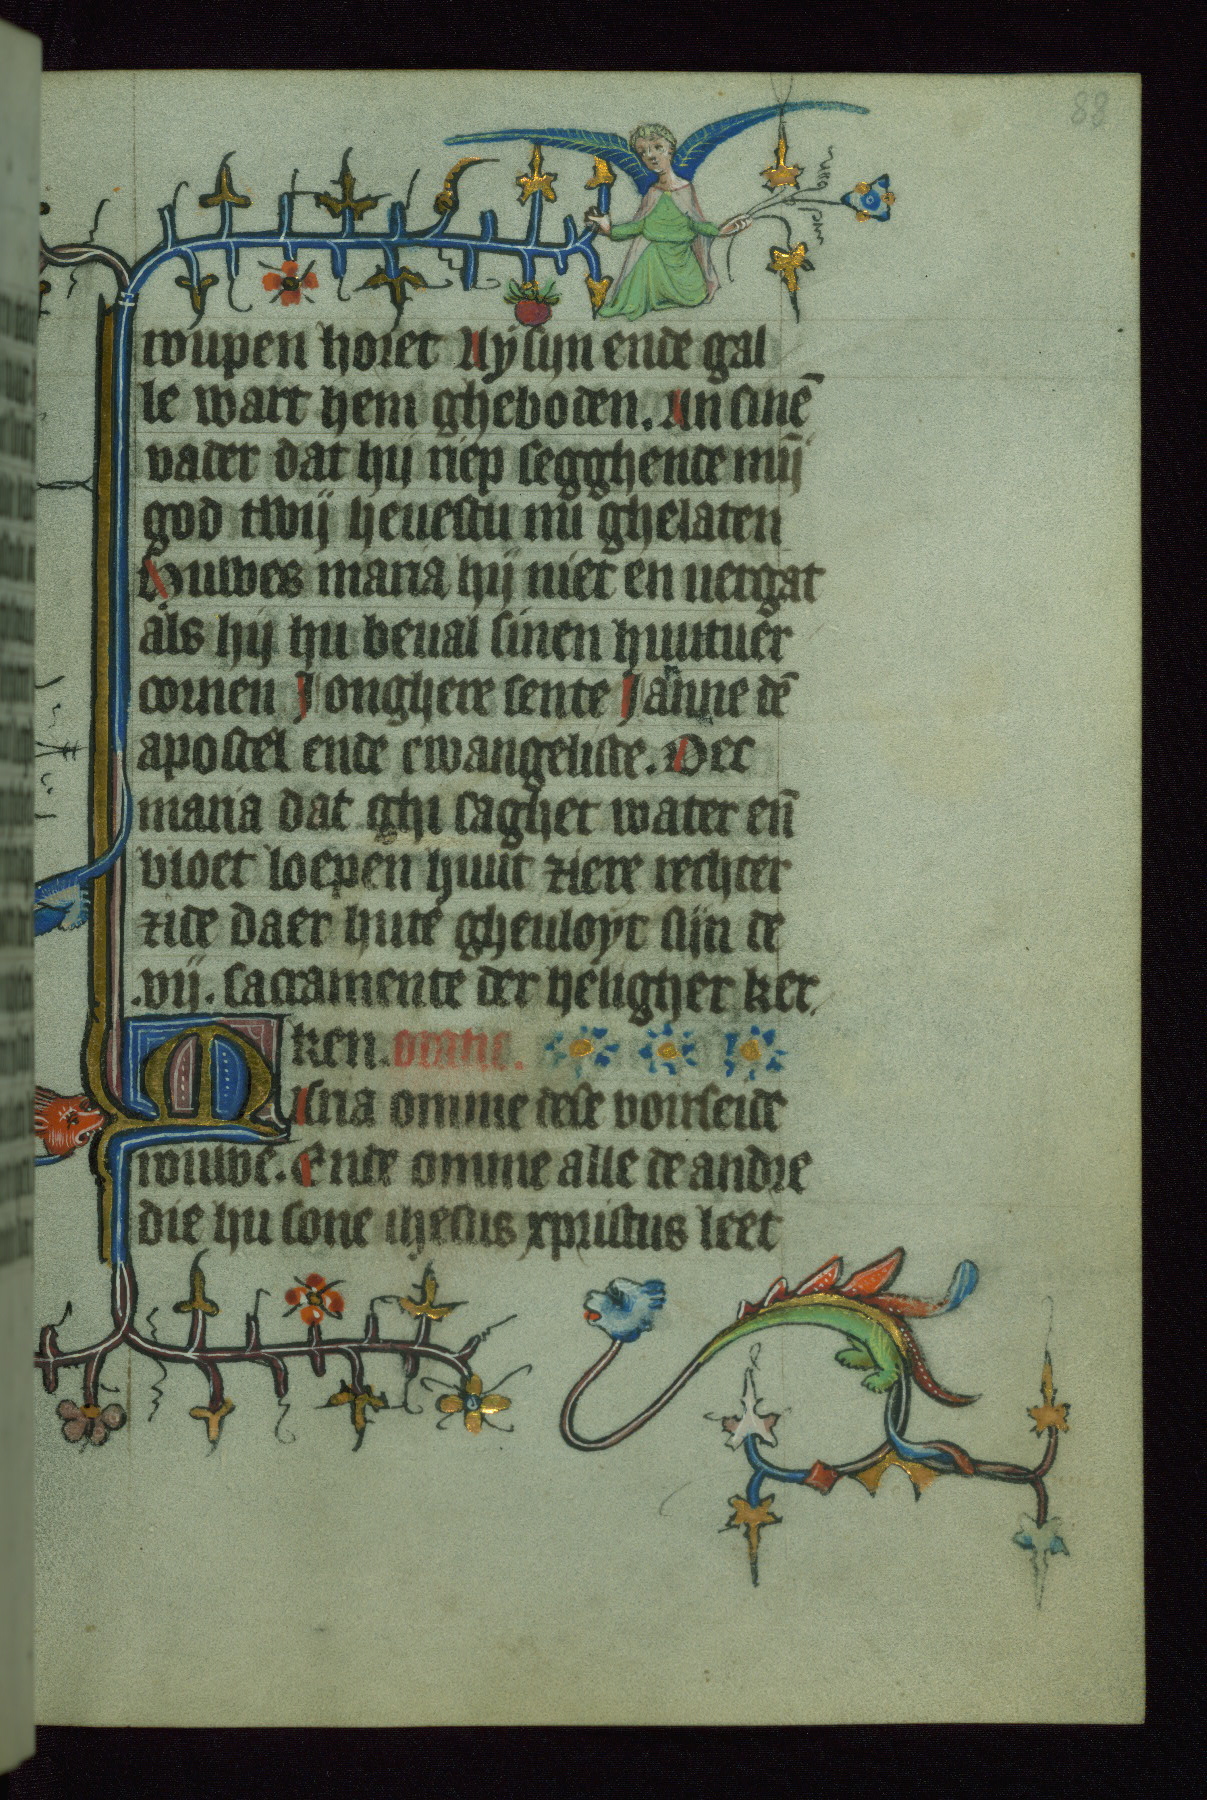 88
roupen horet Aysijn ende gal
le wart hem gheboden. An sinē
vader dat hij riep segghende mij
god twij heuestu mi ghelaten
Huwes maria hij niet en uergat
als hij hu beual sinen huutuer
cornen Jonghere sente Janne dē
apostel ende ewangeliste. Dec
maria dat ghi saghet water eñ
bloet loepen huut ziere rechter
zide daer hute gheuloyt sijn de
.vij. sacramente der heligher ker
ken. oratie.
Maria omme dese vorseide
rouwē. Ende omme alle de andre
die hu sone ihesus xpristus leet